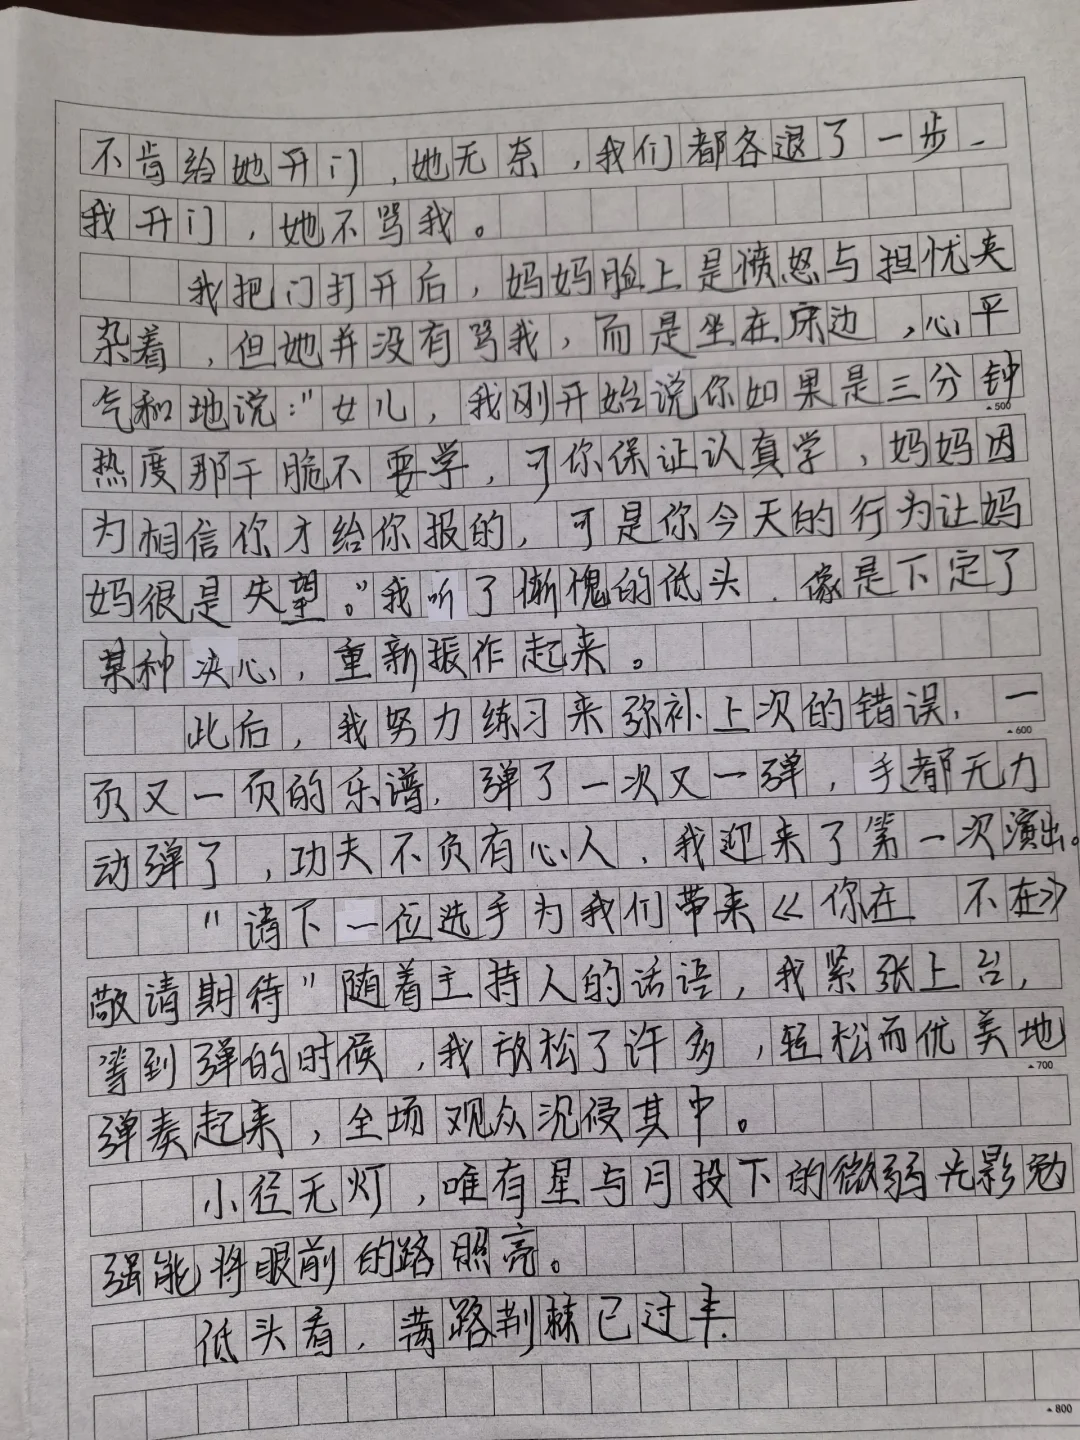 不肯给她开门,她无奈,我们都各退了一步.
我开门,她不骂我。
我把门打开后,妈妈脸上是愤怒与担忧夹
杂着,但她并没有骂我,而是坐在床边,心平
气和地说:"女儿,我刚开始说你如果是三分钟
▲500
热度那干脆不要学,可你保证认真学,妈妈因
为相信你才给你报的,可是你今天的行为让妈
妈很是失望。"我听了惭愧的低头.像是下定了
某种决心,重新振作起来。
此后,我努力练习来弥补上次的错误.一
▲600
页又一页的乐谱.弹了一次又一弹,手都无力
动弹了,功夫不负有心人.我迎来了第一次演出。
"请下一位选手为我们带来《你在 不在》
敬请期待"随着主持人的话语,我紧张上台,
等到弹的时候,我放松了许多,轻松而优美地
▲700
弹奏起来,全场观众沉侵其中。
小径无灯,唯有星与月投下的微弱光影勉
强能将眼前的路照亮。
低头看,满路荆棘已过半.
▲800